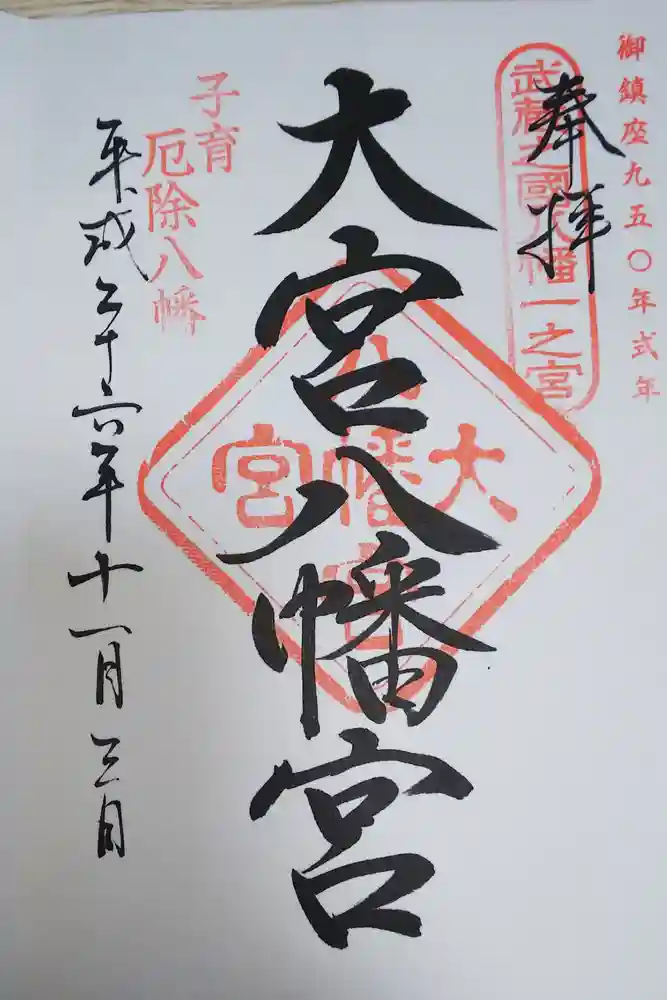 御鎮座九五〇年式年
奉拝
武蔵之國八幡一之宮
大宮八幡宮
大宮
八幡宮
子育
厄除八幡
平成二十六年十一月三日